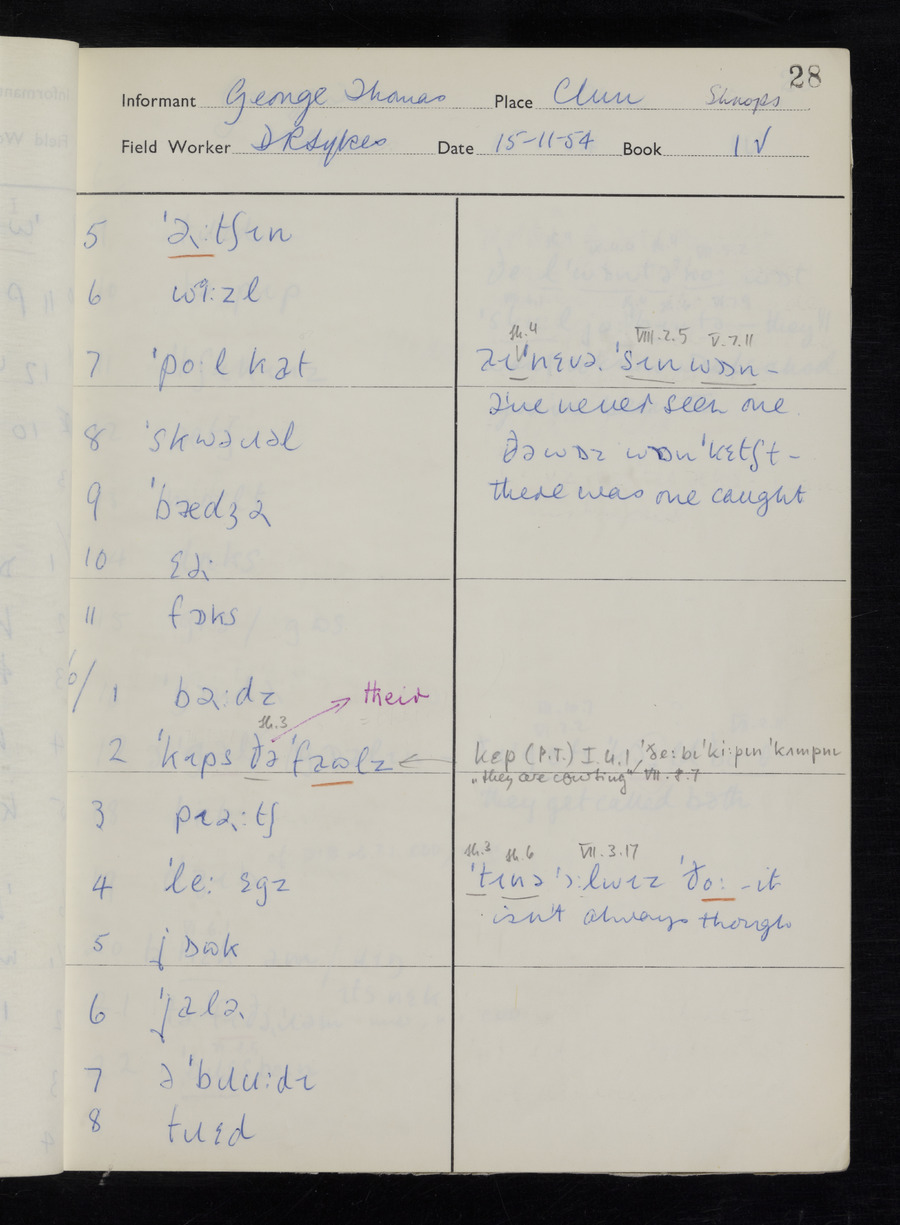 28
Informant George Thomas Place Clun Shrops
Field Worker D R Sykes Date 15-11-54 Book IV
5 'ə˞:tʃɪn
6 wi:zl
7 'po:lkat
8 'skwəɹəl
9 'bædʒə˞
10 ɛdi
11 fɒks
6/ 1 bə˞:dz
sh.3
their
2 'kɪps ðə 'fəʊlz ←
3 pɪə˞:tʃ
4 'le: ɛgz
5 jɒʊk
6 'jalə˞
7 ə 'bɹu:dɪ
8 tɹɛd
sh.4 VIII.2.5 V.7.11
'nɛvə˞ 'sɪn wɒn -
I've never seen one
ðə wɒz wɒn 'kɛtʃt -
there was one caught
kɛp (P.T.) I.4.1, 'ðe:bɪ 'ki:pɪn 'kʌmpnɪ
"they are courting" VII.8.7
sh.3 sh.6 VII.3.17
'tɪnə 'ɔ:lwɪz 'ðo: - it
isn't always though